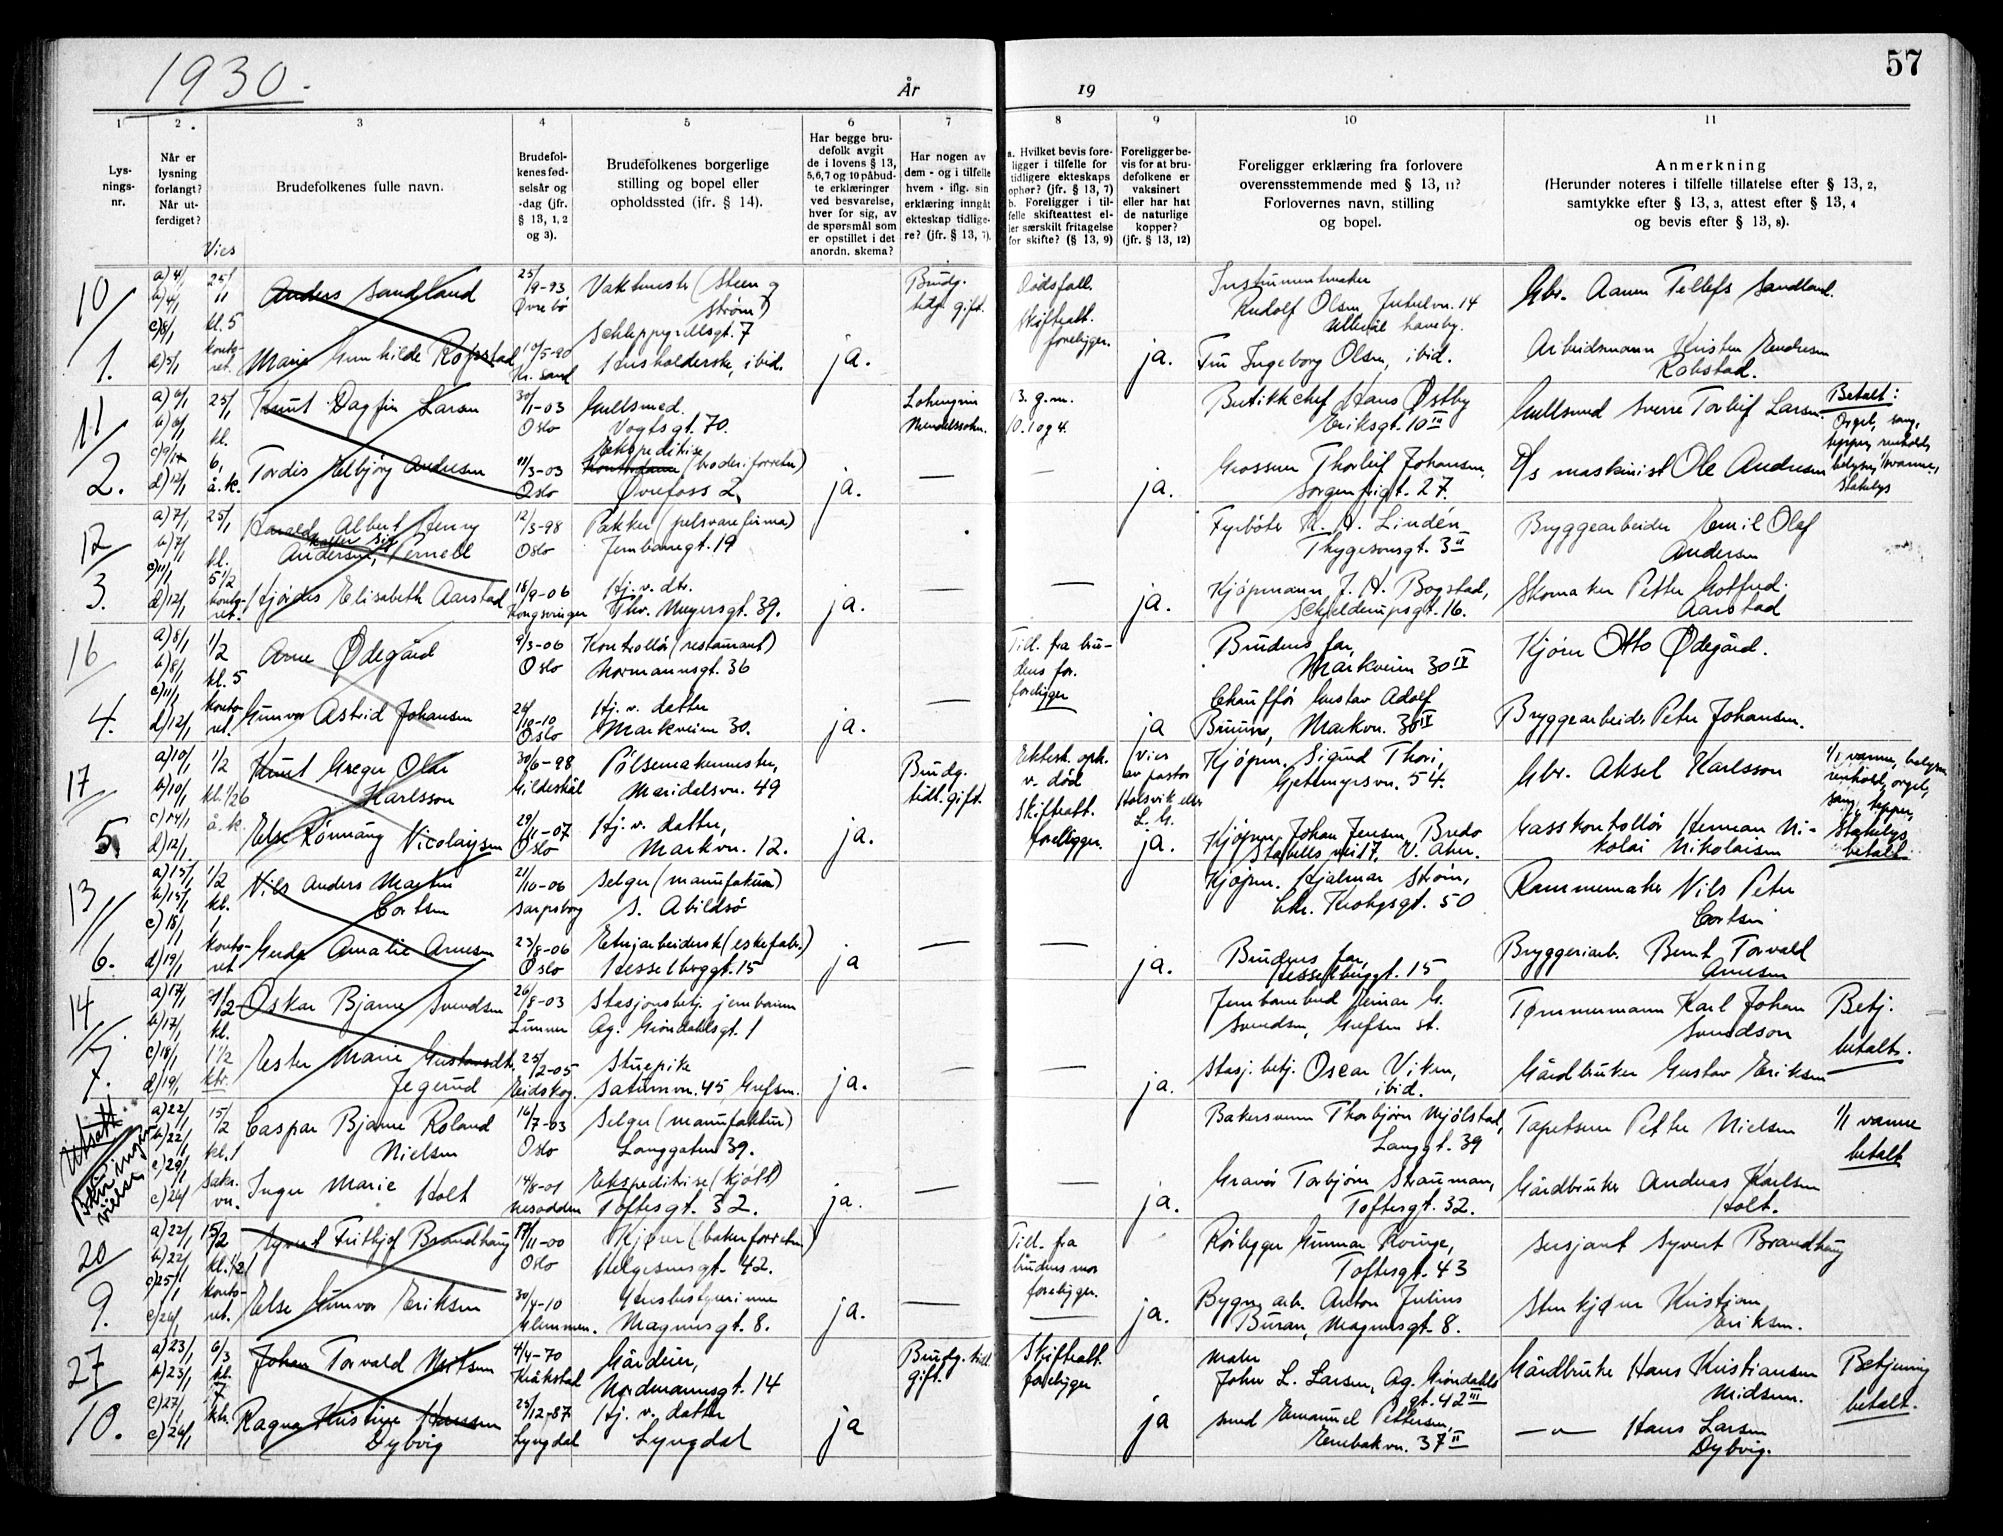 1930.
År
19
57
1 2. 3 4 5 6 7 8 9 10 11
Lys-
nings-
nr.
Når er
lysning
forlangt?
Når ut-
ferdiget?
Vies
Brudefolkenes fulle navn.
Brudefol-
kenes fød-
selsår og
-dag (jfr.
§ 13, 1, 2
og 3).
Brudefolkenes borgerlige
stilling og bopel eller
opholdssted (ifr. § 14).
Har begge bru-
defolk avgit
de i lovens § 13,
5,6,7 og 10 påbud-
te erklæringer
ved besvarelse,
hver for sig, av
de spørsmål som
er opstillet i det
anordn. skema?
Har nogen av
dem - og i tilfelle
hvem - iflg. sin
erklæring inngått
ekteskap tidlige-
re? (jfr. § 13, 7).
a. Hvilket bevis fore-
ligger i tilfelle for
tidligere ekteskaps
ophør? (jfr. § 13, 7)
b. Foreligger i til-
felle skifteattest el-
ler særskilt fritagelse
for skifte? (§ 13, 9)
Foreligger be-
vis for at bru-
defolkene er
vaksinert
eller har hat
de naturlige
kopper?
(jfr. § 13, 12)
Foreligger erklæring fra forlovere
overensstemmende med § 13, 11?
Forlovernes navn, stilling
og bopel.
Anmerkning
(Herunder noteres i tilfelle tillatelse efter § 13, 2,
samtykke efter § 13, 3, attest efter § 13, 4
og bevis efter § 13, 8).
10/
1.
a) 4/1
b) 4/1
c) 8/1
d) 5/1
25/1
kl. 5
konto-
ret.
Anders Sandland
25/9-93
Øvrebø
Vaktmester (Steen &
Strøm)
Schleppegrellsgt. 7
Brudg.
tidl. gift.
Dødsfall.
Skifteatt.
foreligger.
Instrumentmaker
Rudolf Olsen, Jutulvn. 14
Ullevål haveby.
Gbr. Aanen Tellefs Sandland.
Marie Gunhilde Ropstad
10/5-90
Kr. Sand
Husholderske, ibid.
ja.
ja.
Fru Ingeborg Olsen, ibid.
Arbeidsmann Kristen Endresen
Robstad.
11/
2.
a) 6/1
b) 6/1
c) 9/1
d) 12/1
25/1
kl.
6,
å. k.
Knut Dagfin Larsen
30/1-03
Oslo
Gullsmed.
Vogtsgt. 70.
Lohengrin
Mendelssohn.
3. g.m.
10. 1 og 4.
Butikkchef Hans Østby
Eriksgt. 10 III
Gullsmed Sverre Torleif Larsen.
Betalt:
Orgel, sang,
tepper, renhold,
belysn., 1/1 varme,
Stakelys
Tordis Elbjørg Andresen
11/3-03
Oslo
Ekspeditrise
(broderiforretn)
Øvrefoss 2.
ja.
—
—
ja.
Grosserer Thorleif Johansen,
Sorgenfrigt. 27.
D/s maskinist Ole Andresen
12/
3.
a) 7/1
b) 7/1
c) 11/1
d) 12/1
25/1
kl.
5 1/2
kontor
ret.
Harald Albert Henry
kaller sig
Andersen, Pernell
12/3-98
Oslo
Pakker (pelsvarefirma)
Jernbanegt. 19
Fyrbøter K. A. Lindén
Thygesonsgt. 3 II
Bryggearbeider Emil Olaf
Andersen
Hjørdis Elisabeth Aarstad
18/9-06
Kongsvinger
Hj. v. dtr.
Thv. Meyersgt. 39.
ja.
—
ja.
Kjøpmann J. H. Bogstad,
Schjelderupsgt. 16.
Skomaker Petter Gotfred
Aarstad
16/
4.
a) 8/1
b) 8/1
c) 11/1
d) 12/1
1/2
kl. 5
konto-
ret.
Arne Ødegård
9/3-06
Oslo
Kontrollør (restaurant)
Normannsgt. 36
Till. fra bru-
dens far.
foreligger
Brudens far,
Markveien 30 IV
Kjører Otto Ødegård.
Gunvor Astrid Johansen
24/10-10
Oslo
Hj. v. datter
Markveien 30.
ja.
—
ja
Chauffør Gustav Adolf
Bruun, Markvn. 30 IV
Bryggearbeider Peter Johansen.
17/
5.
a) 10/1
b) 10/1
c) 14/1
d) 12/1
1/2
kl. 1/2 6
å. k.
Knut Greger Olde
Karlsson
30/6-98
Gildeskål
Pølsemakermester,
Maridalsvn. 49
Brudg.
tidl. gift.
Ektesk. oph.
v. død
Skifteatt.
foreligger.
(Vies
av pastor
Halsvik eller
L. G.
Kjøpm. Sigurd Thori,
Gjetemyrsvn. 54.
Gbr. Aksel Karlsson
1/1 varme, belysn
renhold, orgel,
sang, tepper,
Stakelys
betalt
Else Rønnaug Nicolaysen
29/11-07
Oslo
Hj. v. datter,
Markvn. 12.
ja.
ja.
Kjøpm. Johan Jensen, Bredo
Stabells vei 17, V. Aker.
Gasskontrollør Herman Ni-
kolai Nikolaisen
13//
6.
a) 15/1
b) 15/1
c) 18/1
d) 19/1
1/2
kl.
1
konto-
ret
Nils Anders Martin
Cortsen
21/10-06
Sarpsborg
Selger (manufaktur)
S. Abildsø
Kjøpm. Hjalmar Strøm,
Chr. Krohgsgt. 50
Rammemaker Nils Peter
Cortsen
Gerda Amalie Arnesen
23/8-06
Oslo
Etuiarbeiderske (eskefabr.)
Hesselbergsgt. 15
ja
—
—
ja.
Brudens far,
Hesselbergsgt. 15
Bryggeriarb. Bernt Torvald
Arnesen
14/
7.
a) 17/1
b) 17/1
c) 18/1
d) 19/1
1/2
kl.
1 1/2
ktr.
Oskar Bjarne Svendsen
26/8-03
Lunner
Stasjonsbetj. jernbanen
Ag. Grøndahlsgt. 1
Jernbanebud Heinar G.
Svendsen, Grefsen st.
Tømmermann Karl Johan
Svendson
Betj.
betalt.
Ester Marie Gustavsdtr.
Jegerud
25/2-05
Eidskog.
Stuepike
Saturnvn. 45 Grefsen.
ja.
—
—
ja.
Stasj. betj. Oscar Viken,
ibid.
Gårdbruker Gustav Eriksen
Utsatt.
Blir ingen
vielse
a) 22/1
b) 22/1
c) 29/1
c) 24/1
15/2
kl. 1
Sakr.
vn.
Caspar Bjarne Roland
Nielsen
16/7-03
Oslo
Selger (manufaktur)
Langgaten 39.
Bakersvenn Thorbjørn Mjølstad,
Langgt. 39
Tapetserer Petter Nielsen
1/1 varme
betalt
Inger Marie Holt
14/8-01
Nesodden
Ekspeditrise (kjøtt)
Toftesgt. 32.
ja.
—
—
ja.
Gravør Torbjørn Strauman,
Toftesgt. 32.
Gårdbruker Andreas Karlsen
Holt.
20
9.
a) 22/1
b) 22/1
c) 25/1
c) 24/1
15/2
kl. 1/2 1
konto-
ret.
Syvert Fritjof Brandhaug
17/11-00
Oslo
Kjører (bakerforretn)
Helgesensgt. 42.
Till. fra
brudens mor
foreligger.
Rørlegger Gunnar Kvinge,
Toftesgt. 43
Sersjant Syvert Brandhaug
Else Gunvor Eriksen
30/4-10
Glemmen.
Husbestyrerinne
Magnusgt. 8.
ja.
—
—
ja.
Bygn. arb. Anton Julius
Buran, Magnusgt. 8.
Stenkjører Kristian
Eriksen.
27/
10.
a) 23/1
b) 23/1
c) 27/1
c) 24/1
6/3
kl.
7
ktr.
Johan Torvald Midtsem
4/4-70
Kråkstad
Gårdeier,
Nordmannsgt. 14
Brudg. tidl.
gift.
Skifteatt.
foreligger
Maler
John L. Larsen, Ag. Grøndahls
gt. 42 III
Gårdbruker Hans Kristiansen
Midsem.
Betjening
betalt.
Ragna Kristine Hansen
Dybvig
25/12-87
Lyngdal
Hj. v. datter
Lyngdal
ja
ja
Smed Emanuel Pettersen,
Enebakvn. 37 II
—"— Hans Larsen
Dybvig.